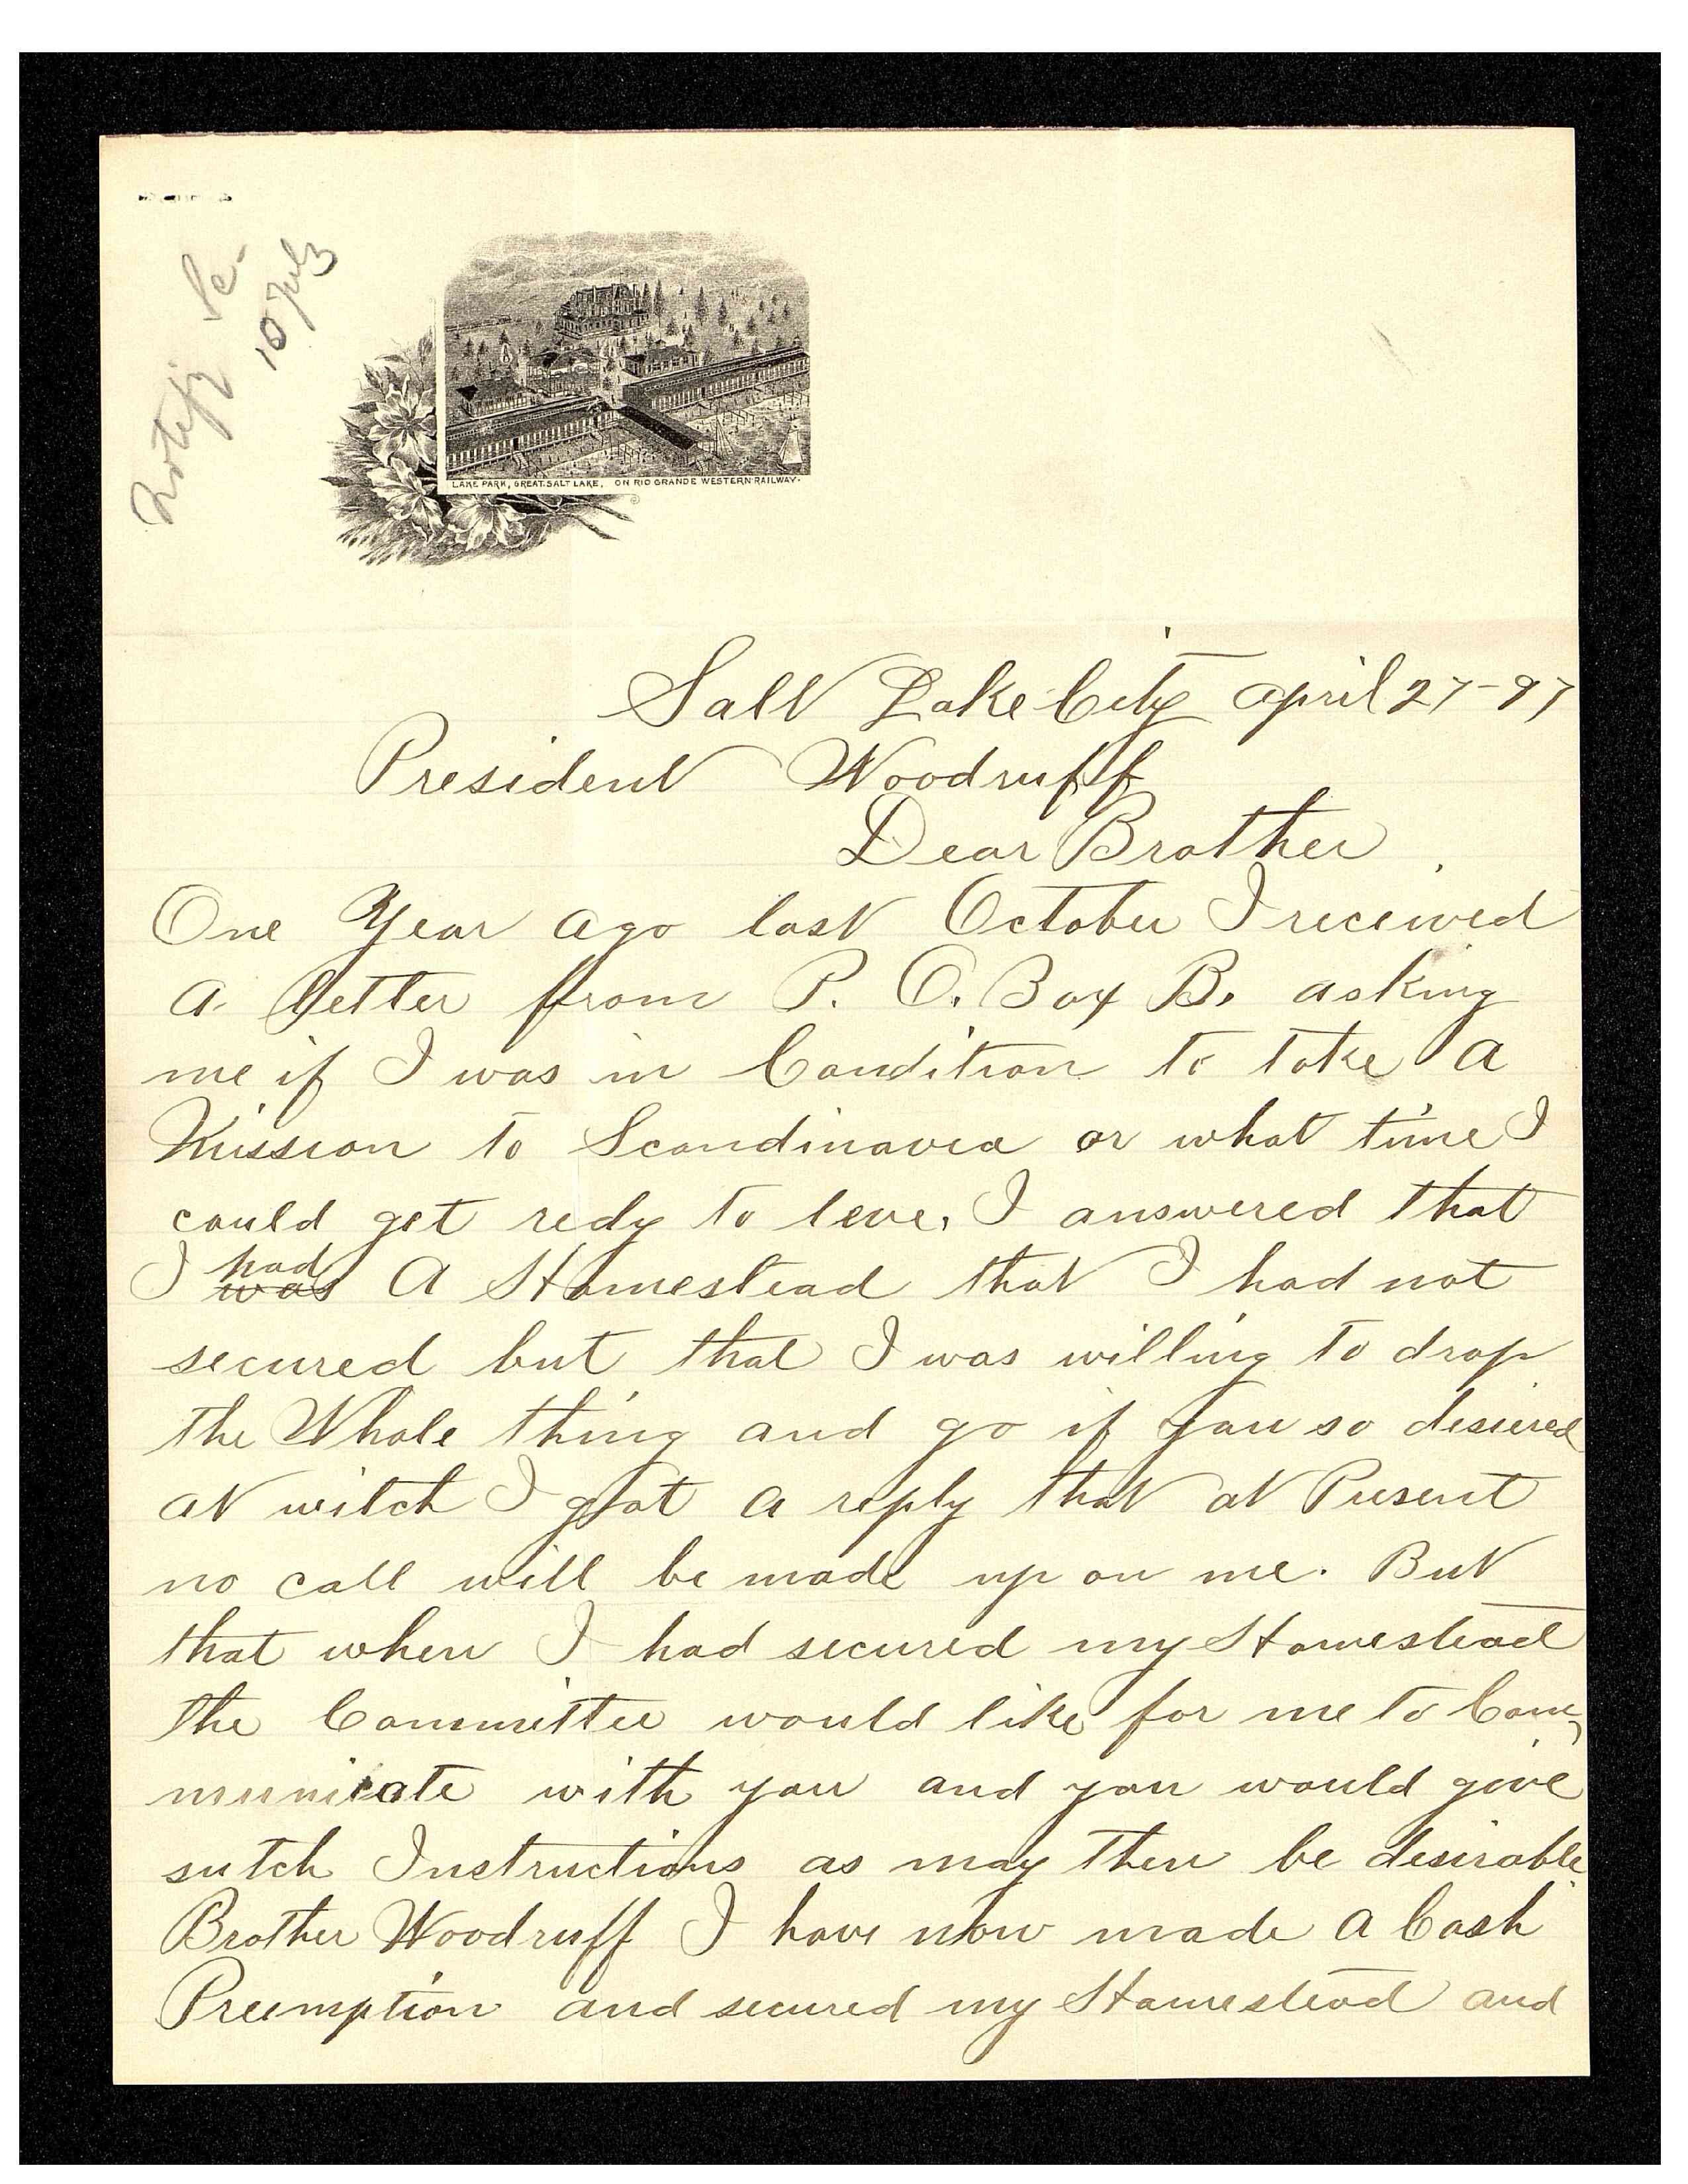 Notify Sc.
10 July
LAKE PARK, GREAT SALT LAKE, ON RIO GRANDE WESTERN RAILWAY.
Salt Lake City april 27-97
President Woodruff
Dear Brother
One Year ago last October I received
a letter from P. O. Box B. asking
me if I was in Condition to take a
Mission to Scandinavia or what time I
could get redy to leve, I answered that
I had was A Homestead that I had not
secured but that I was willing to drop
the Whole thing and go if you so desiered
at witch I got a reply that at Present
no call will be made up on me. But
that when I had secured my Homestead
the Committee would like for me to Com,
municate with you and you would give
sutch Instructions as may then be desirable.
Brother Woodruff I have now made a Cash
Preemption and secured my Homestead and